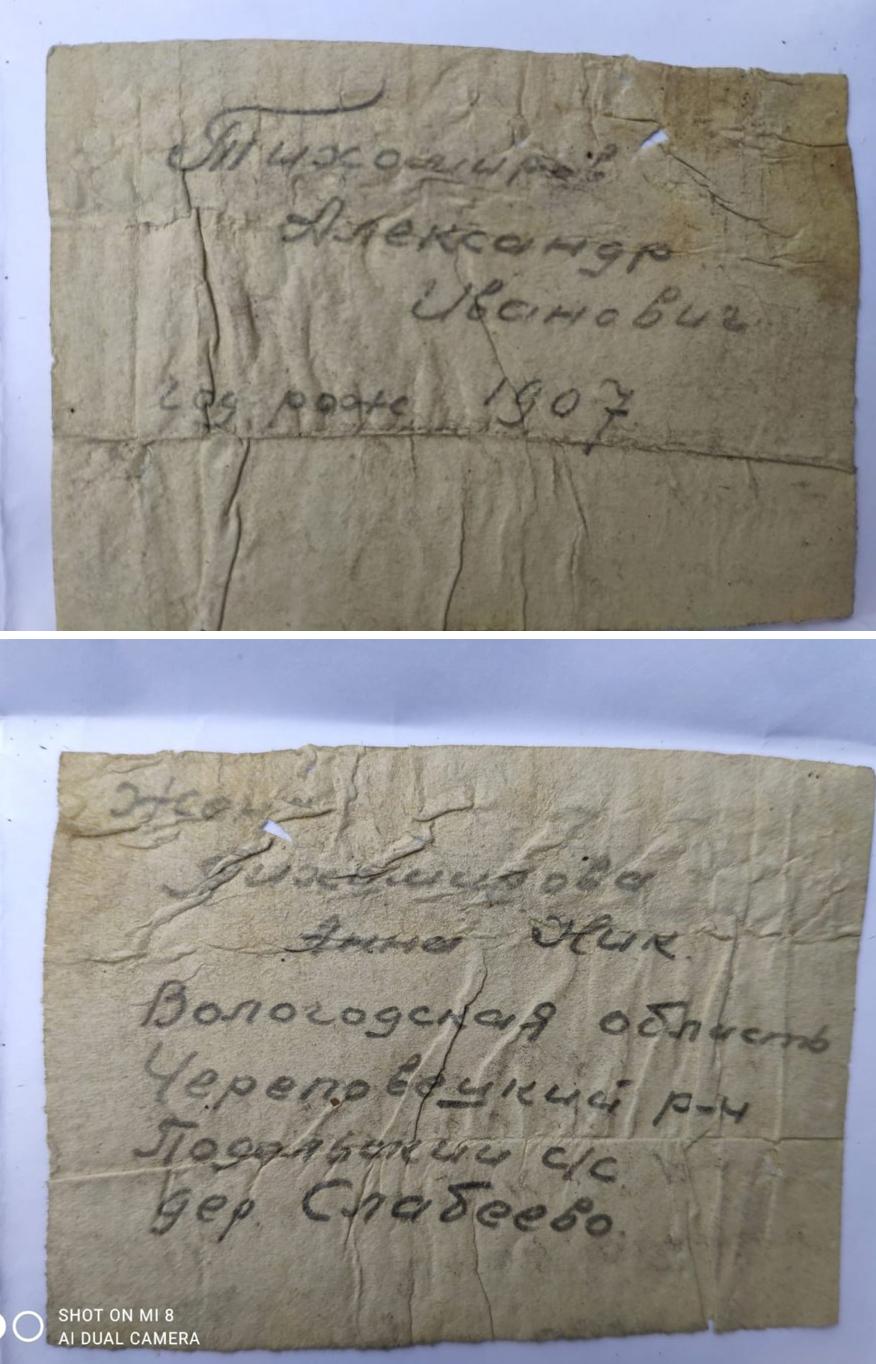 Тихомиров
Александр
Иванович
год рожс 1907
Жена
Тихомирова
Анна Ник.
Вологодская область
Череповецкий р-н
Подольский с/с
дер. Слабеево
SHOT ON MI 8
AI DUAL CAMERA